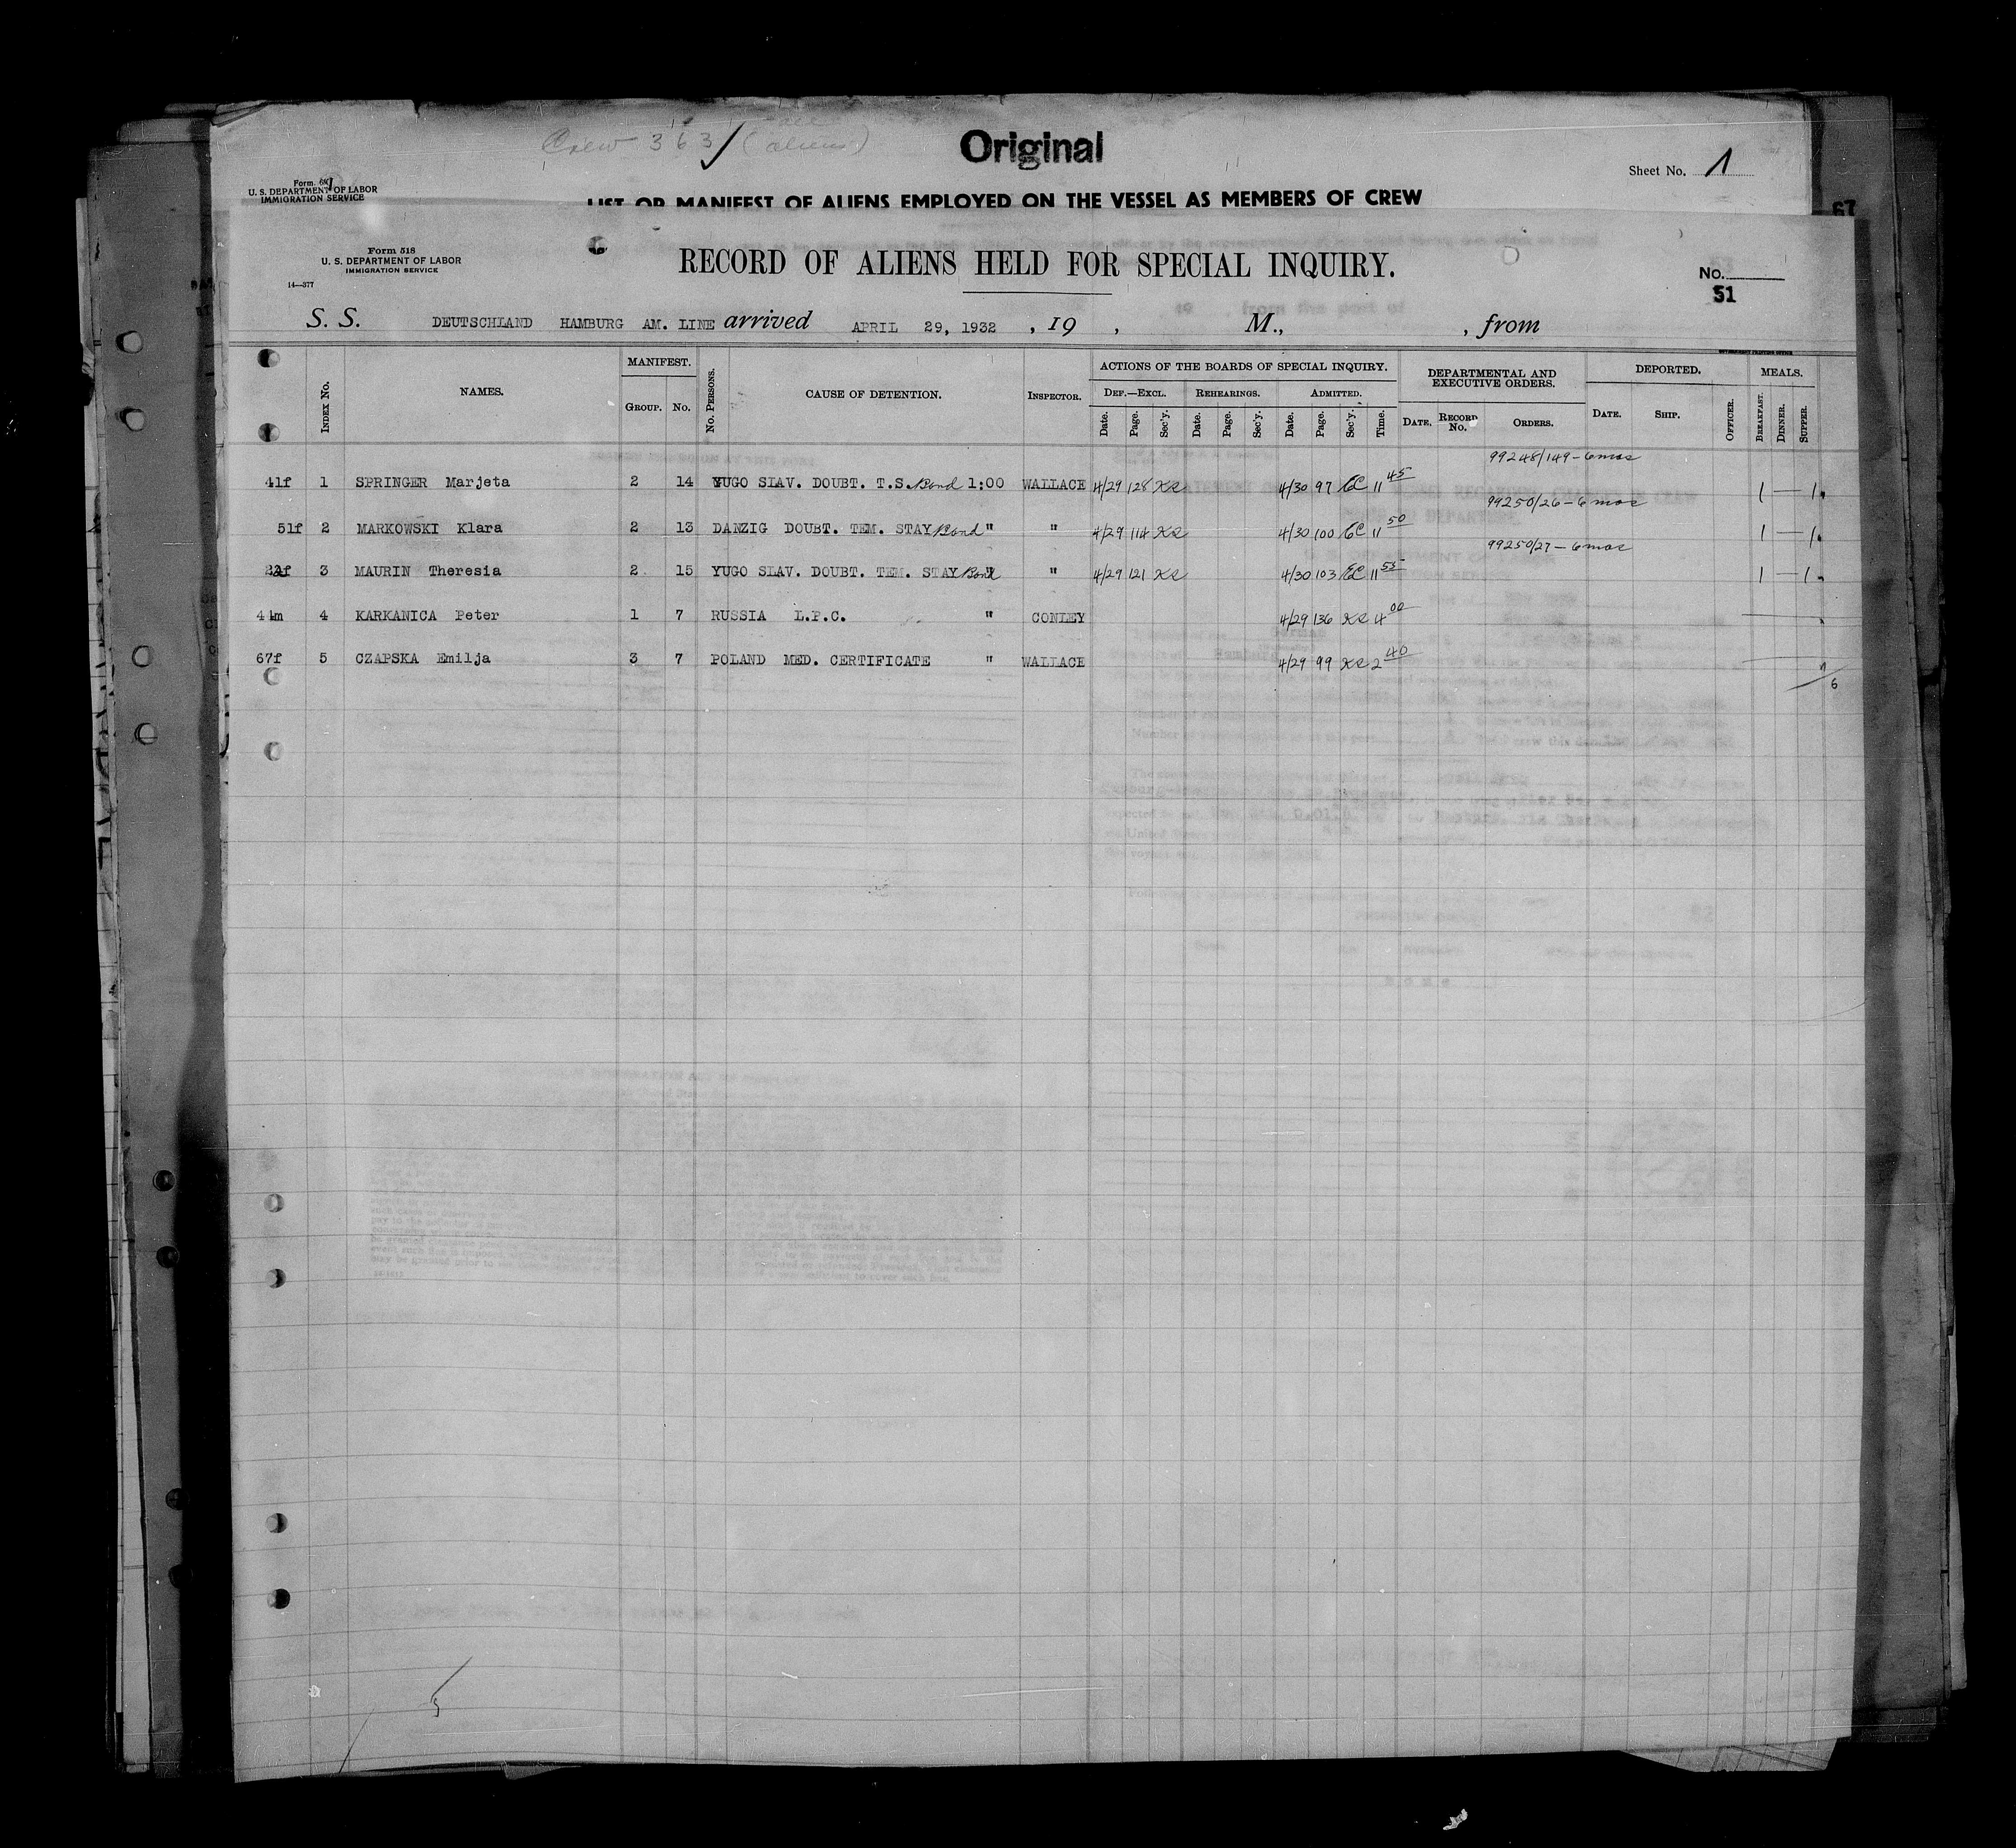 Crew 363 / (aliens)
Original
Sheet No. 1
Form 681
U. S. DEPARTMENT OF LABOR
IMMIGRATION SERVICE
LIST OR MANIFEST OF ALIENS EMPLOYED ON THE VESSEL AS MEMBERS OF CREW
67
Form 518
U. S. DEPARTMENT OF LABOR
IMMIGRATION SERVICE
14—377
RECORD OF ALIENS HELD FOR SPECIAL INQUIRY.
No.
51
S. S. DEUTSCHLAND HAMBURG AM. LINE arrived APRIL 29, 1932 , 19 , M., , from
Index No. NAMES. MANIFEST. Group. No. No. Persons. CAUSE OF DETENTION. Inspector. ACTIONS OF THE BOARDS OF SPECIAL INQUIRY. DEPARTMENTAL AND EXECUTIVE ORDERS. DEPORTED. MEALS.
Def.—Excl. Rehearings. Admitted.
Date. Page. Sec'y. Date. Page. Sec'y. Date. Page. Sec'y. Time. Date. Record No. Orders. Date. Ship. Officer. Breakfast. Dinner. Supper.
99248/149 - 6 mos
41f 1 SPRINGER Marjeta 2 14 YUGO SLAV. DOUBT. T.S. Bond 1:00 WALLACE 4/29 128 KR 4/30 97 EC 11 45 1 — 1
99250/26 - 6 mos
51f 2 MARKOWSKI Klara 2 13 DANZIG DOUBT. TEM. STAY Bond " " 4/29 114 KR 4/30 100 EC 11 50 1 — 1
99250/27 - 6 mos
22f 3 MAURIN Theresia 2 15 YUGO SLAV. DOUBT. TEM. STAY Bond " " 4/29 121 KR 4/30 103 EC 11 55 1 — 1
44m 4 KARKANICA Peter 1 7 RUSSIA L.P.C. " CONLEY 4/29 136 KR 4 00
67f 5 CZAPSKA Emilja 3 7 POLAND MED. CERTIFICATE " WALLACE 4/29 99 KR 2 40
6
5